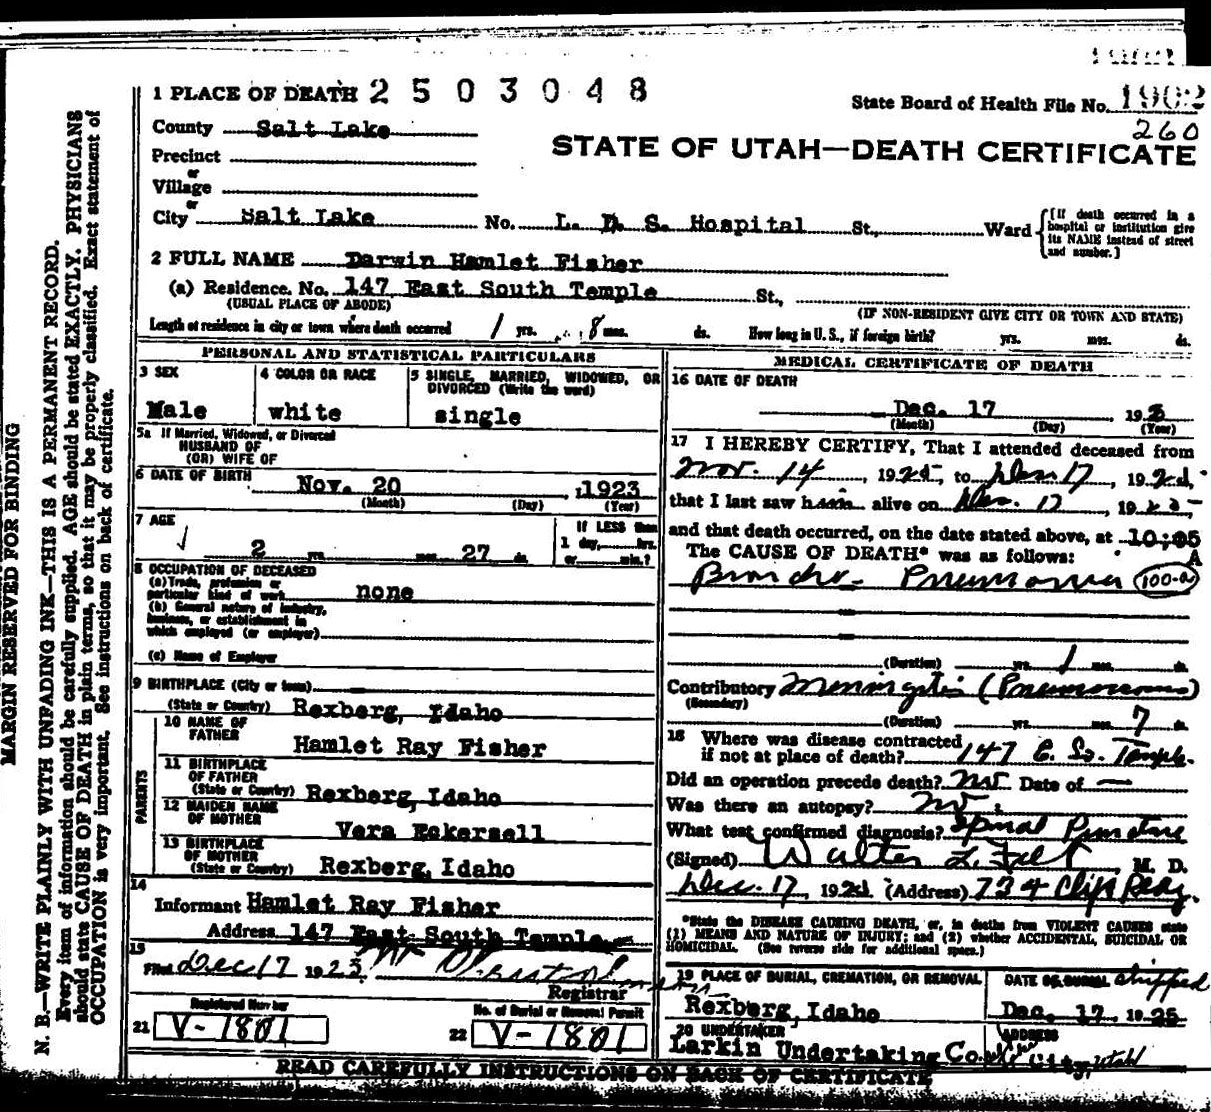 1 PLACE OF DEATH 2 5 0 3 0 4 8
State Board of Health File No. 1902
260
County Salt Lake
STATE OF UTAH—DEATH CERTIFICATE
Precinct
or
Village
or
City Salt Lake No. L. D. S. Hospital St., Ward [If death occurred in a hospital or institution give its NAME instead of street and number.]
2 FULL NAME Darwin Hamlet Fisher
(a) Residence. No. 147 East South Temple St.,
(USUAL PLACE OF ABODE) (IF NON-RESIDENT GIVE CITY OR TOWN AND STATE)
Length of residence in city or town where death occurred 1 yrs. 8 mos. ds. How long in U. S., if foreign birth? yrs. mos. ds.
PERSONAL AND STATISTICAL PARTICULARS
3 SEX
Male
4 COLOR OR RACE
white
5 SINGLE, MARRIED, WIDOWED, OR
DIVORCED (Write the word)
single
5a If Married, Widowed, or Divorced
HUSBAND OF
(OR) WIFE OF
6 DATE OF BIRTH
Nov. 20, 1923
(Month) (Day) (Year)
7 AGE
2 yrs. mos. 27 ds.
If LESS than
1 day, hrs.
or min.?
8 OCCUPATION OF DECEASED
(a) Trade, profession or
particular kind of work none
(b) General nature of industry,
business, or establishment in
which employed (or employer)
(c) Name of Employer
9 BIRTHPLACE (City or town)
(State or Country) Rexberg, Idaho
PARENTS
10 NAME OF
FATHER
Hamlet Ray Fisher
11 BIRTHPLACE
OF FATHER
(State or Country) Rexberg, Idaho
12 MAIDEN NAME
OF MOTHER
Vera Eckersell
13 BIRTHPLACE
OF MOTHER
(State or Country) Rexberg, Idaho
14
Informant Hamlet Ray Fisher
Address 147 East South Temple
15
Filed Dec 17 1925
Registrar
Registered Number
21 V-1801
No. of Burial or Removal Permit
22 V-1801
MEDICAL CERTIFICATE OF DEATH
16 DATE OF DEATH
Dec. 17, 1925
(Month) (Day) (Year)
17 I HEREBY CERTIFY, That I attended deceased from
Nov. 14 1925, to Dec 17, 1925,
that I last saw him alive on Dec. 17, 1925,
and that death occurred, on the date stated above, at 10;05
A
The CAUSE OF DEATH* was as follows:
Broncho- Pneumonia 100-a
(Duration) yrs. 1 mos. ds.
Contributory Meningitis (Pneumococcus)
(Secondary)
(Duration) yrs. mos. 7 ds.
18 Where was disease contracted
if not at place of death? 147 E. So. Temple.
Did an operation precede death? No Date of —
Was there an autopsy? No.
What test confirmed diagnosis? Spinal Puncture
(Signed) Walter L. M. D.
Dec. 17 1925 (Address) 734 Clift Bldg.
*State the DISEASE CAUSING DEATH, or, in deaths from VIOLENT CAUSES state
(1) MEANS AND NATURE OF INJURY; and (2) whether ACCIDENTAL, SUICIDAL OR
HOMICIDAL. (See reverse side for additional space.)
19 PLACE OF BURIAL, CREMATION, OR REMOVAL
Rexberg, Idaho
DATE OF BURIAL shipped
Dec. 17 1925
20 UNDERTAKER
Larkin Undertaking Co.
ADDRESS
City, Utah
READ CAREFULLY INSTRUCTIONS ON BACK OF CERTIFICATE
MARGIN RESERVED FOR BINDING
N. B.—WRITE PLAINLY WITH UNFADING INK—THIS IS A PERMANENT RECORD.
Every item of information should be carefully supplied. AGE should be stated EXACTLY. PHYSICIANS
should state CAUSE OF DEATH in plain terms, so that it may be properly classified. Exact statement of
OCCUPATION is very important. See instructions on back of certificate.